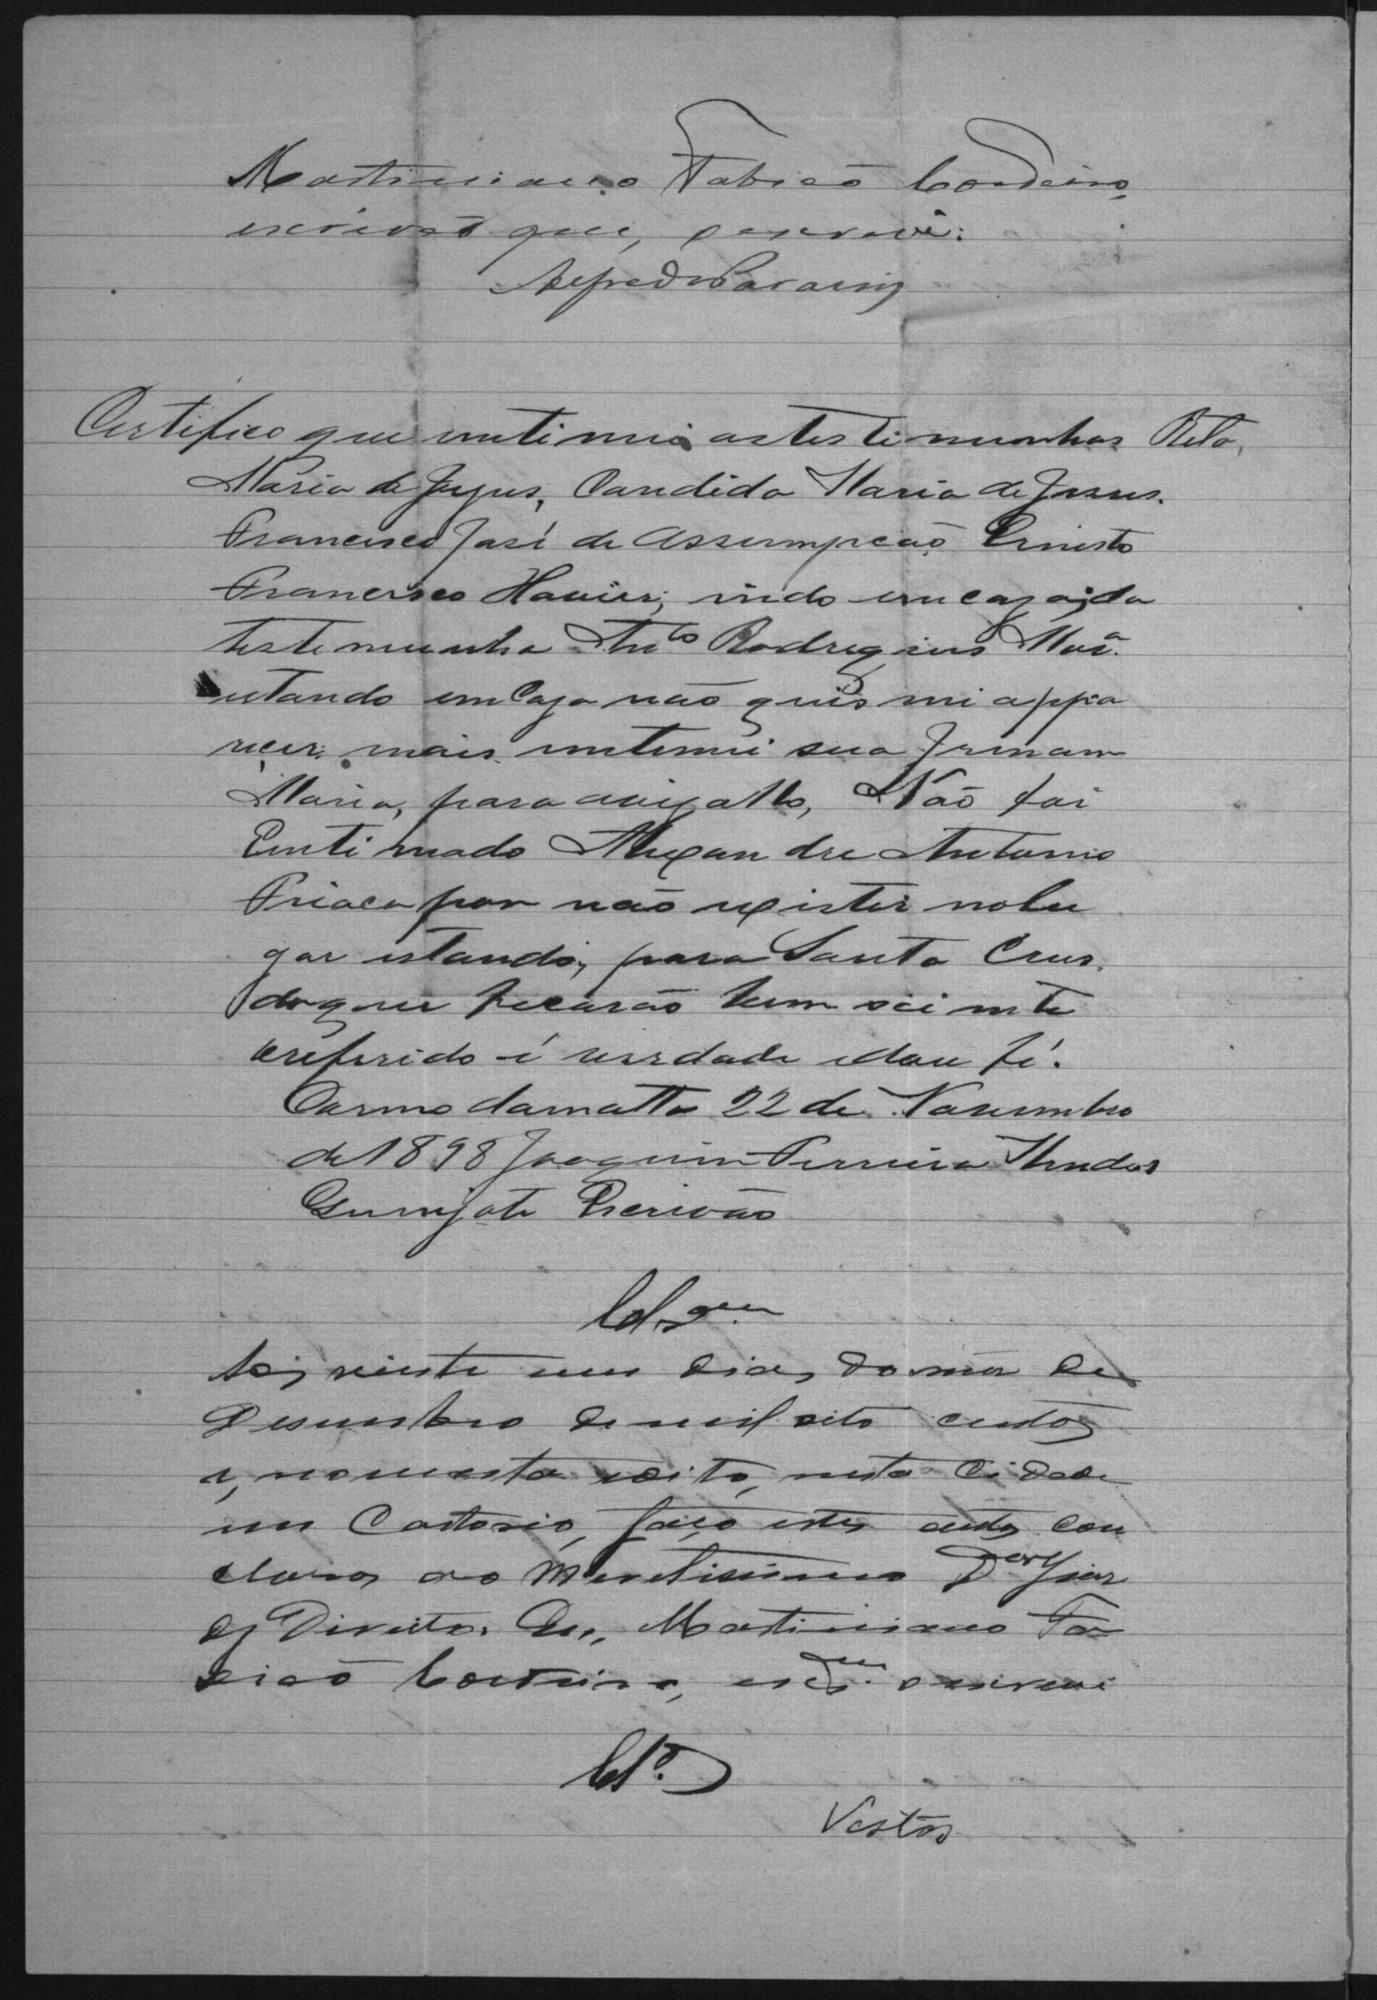 Martiniano Fabião Cordeiro,
escrivaõ que, o escrevi.
Alfredo
Certifico que intimei as testimunhas Rita,
Maria de Jezus, Candida Maria de Jesus.
Francisco José de Assumpcaõ Ernesto
Francisco Havier; indo em caza da
testemunha Anto Rodregius
estando em Caza não quis mi appa
recer. mais intimei sua Irmam
Maria, para avizallo, Não foi
Entimado Alexandre Antonio
por não existir nolu
gar estando, para Santa Crus.
doque ficarão bem sciente
oreferido é verdade edou fé.
Carmo damatta 22 de Novembro
de 1898 Joaquim Ferreira
Escrivão
Clsam
Aos vinte um dias do mes de
Desembro de mil oito centos
e, noventa eoito, nesta Cidade
em Cartorio, faço estes autos con
clusos ao Meretissimo Dor Juis
de Direito. Eu, Martiniano Fa
bião Cordeiro, escram o escrevi
Clso
Vistos